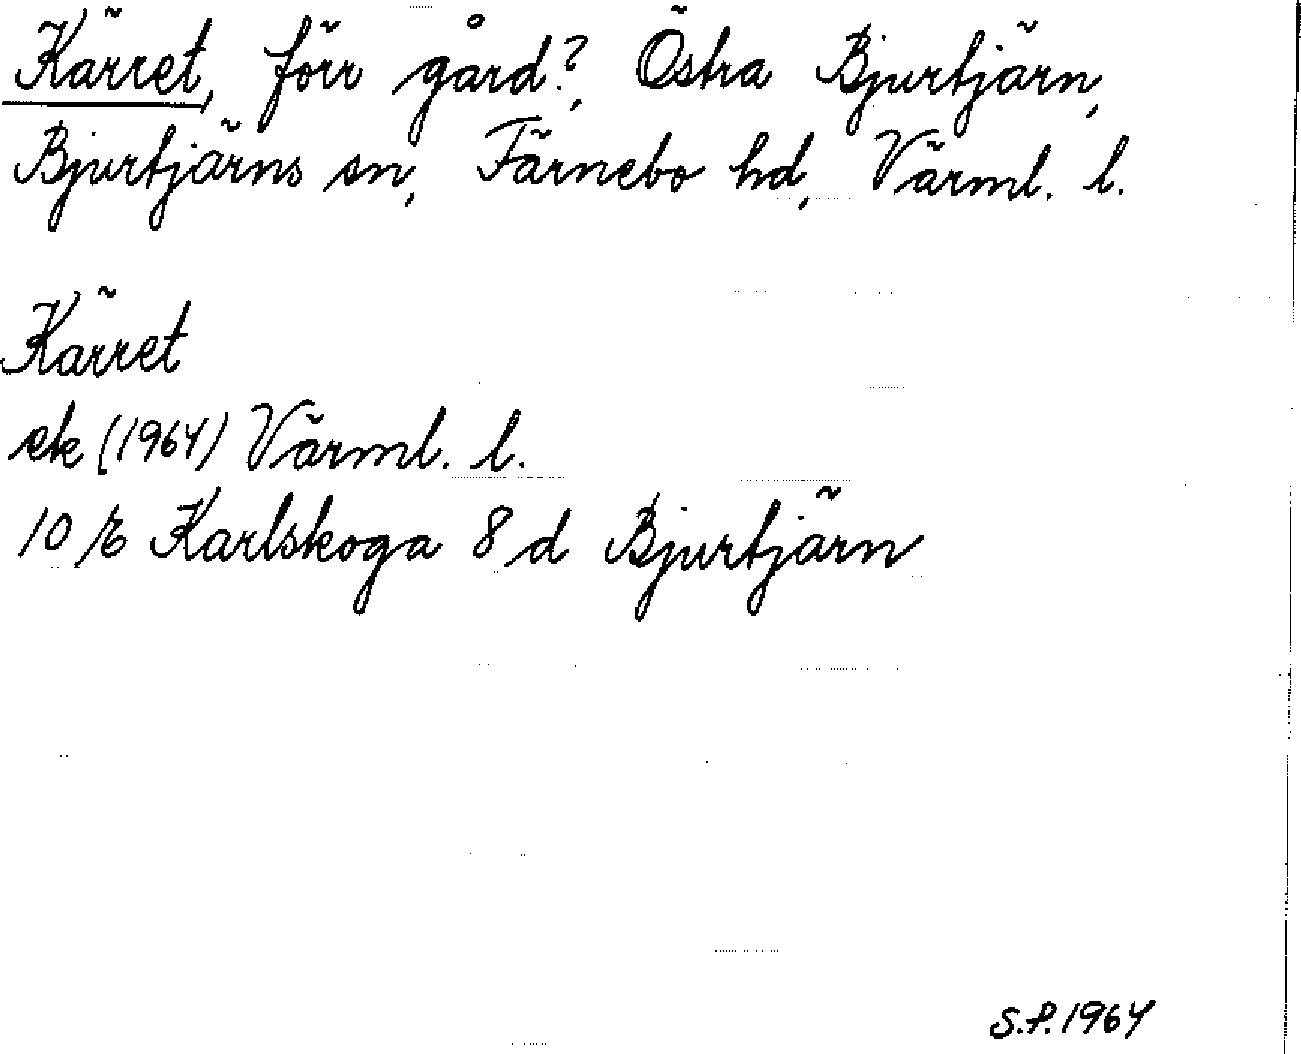 Kärret, förr gård?, Östra Bjurtjärn,
Bjurtjärns sn, Färnebo hd, Värml. l.
Kärret
ek (1964) Värml. l.
10 E Karlskoga 8 d Bjurtjärn
S.P. 1964